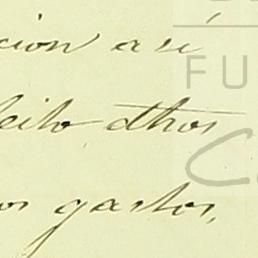 cion asi
leito dhos
os gastos,
FU
C